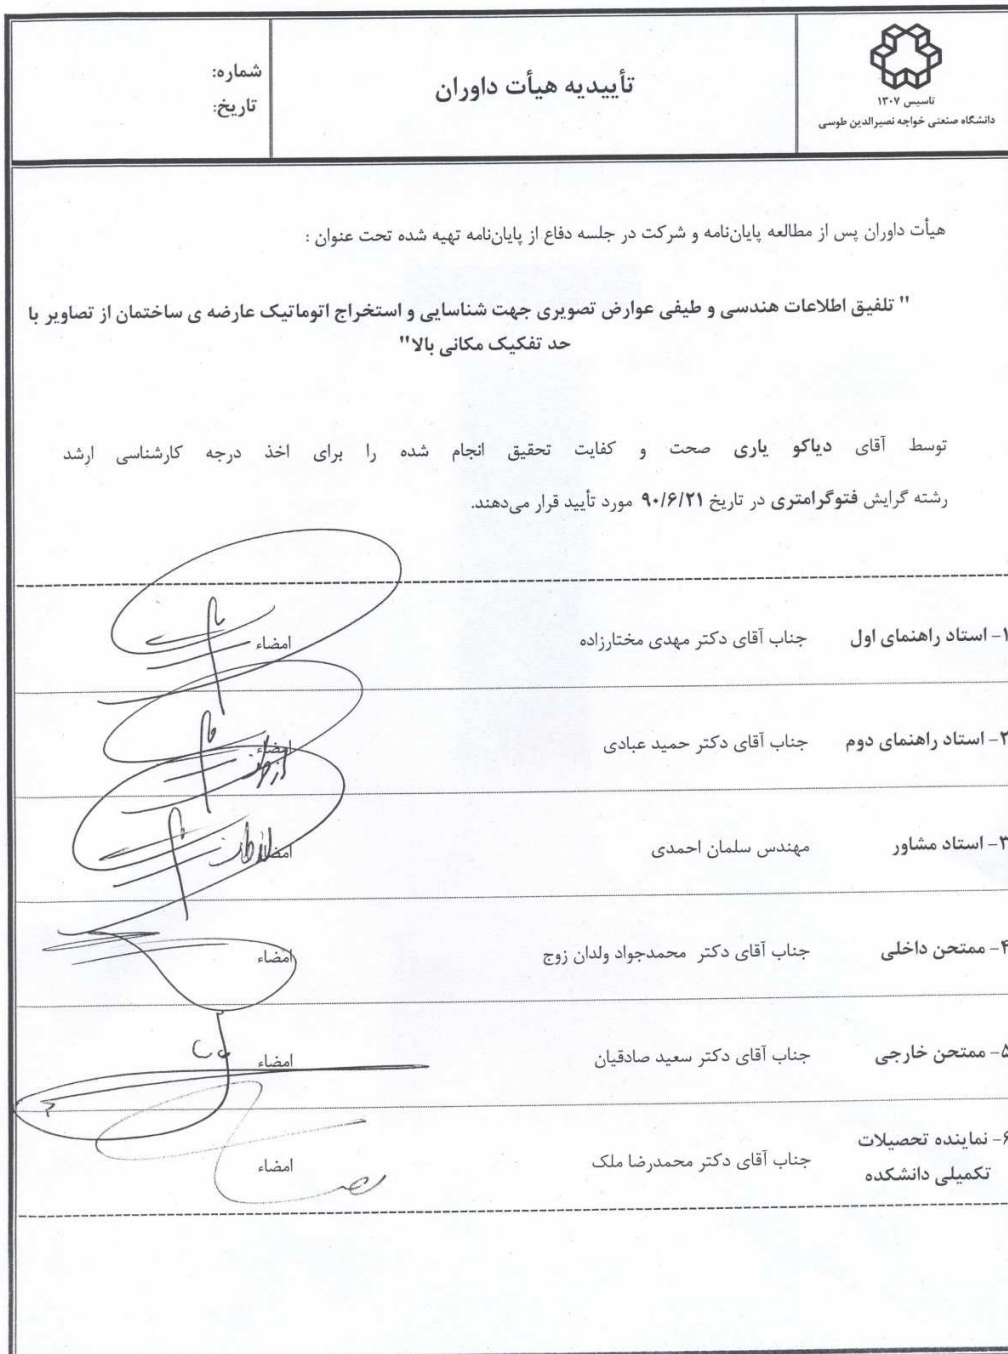 تاسیس ۱۳۰۷
دانشگاه صنعتی خواجه نصیرالدین طوسی
تأییدیه هیأت داوران
شماره:
تاریخ:
هیأت داوران پس از مطالعه پایان‌نامه و شرکت در جلسه دفاع از پایان‌نامه تهیه شده تحت عنوان :
" تلفیق اطلاعات هندسی و طیفی عوارض تصویری جهت شناسایی و استخراج اتوماتیک عارضه ی ساختمان از تصاویر با
حد تفکیک مکانی بالا"
توسط آقای دیاکو یاری صحت و کفایت تحقیق انجام شده را برای اخذ درجه کارشناسی ارشد
رشته گرایش فتوگرامتری در تاریخ ۹۰/۶/۲۱ مورد تأیید قرار می‌دهند.
۱- استاد راهنمای اول جناب آقای دکتر مهدی مختارزاده امضاء
۲- استاد راهنمای دوم جناب آقای دکتر حمید عبادی امضاء
۳- استاد مشاور مهندس سلمان احمدی امضاء
۴- ممتحن داخلی جناب آقای دکتر محمدجواد ولدان زوج امضاء
۵- ممتحن خارجی جناب آقای دکتر سعید صادقیان امضاء
۶- نماینده تحصیلات
تکمیلی دانشکده جناب آقای دکتر محمدرضا ملک امضاء